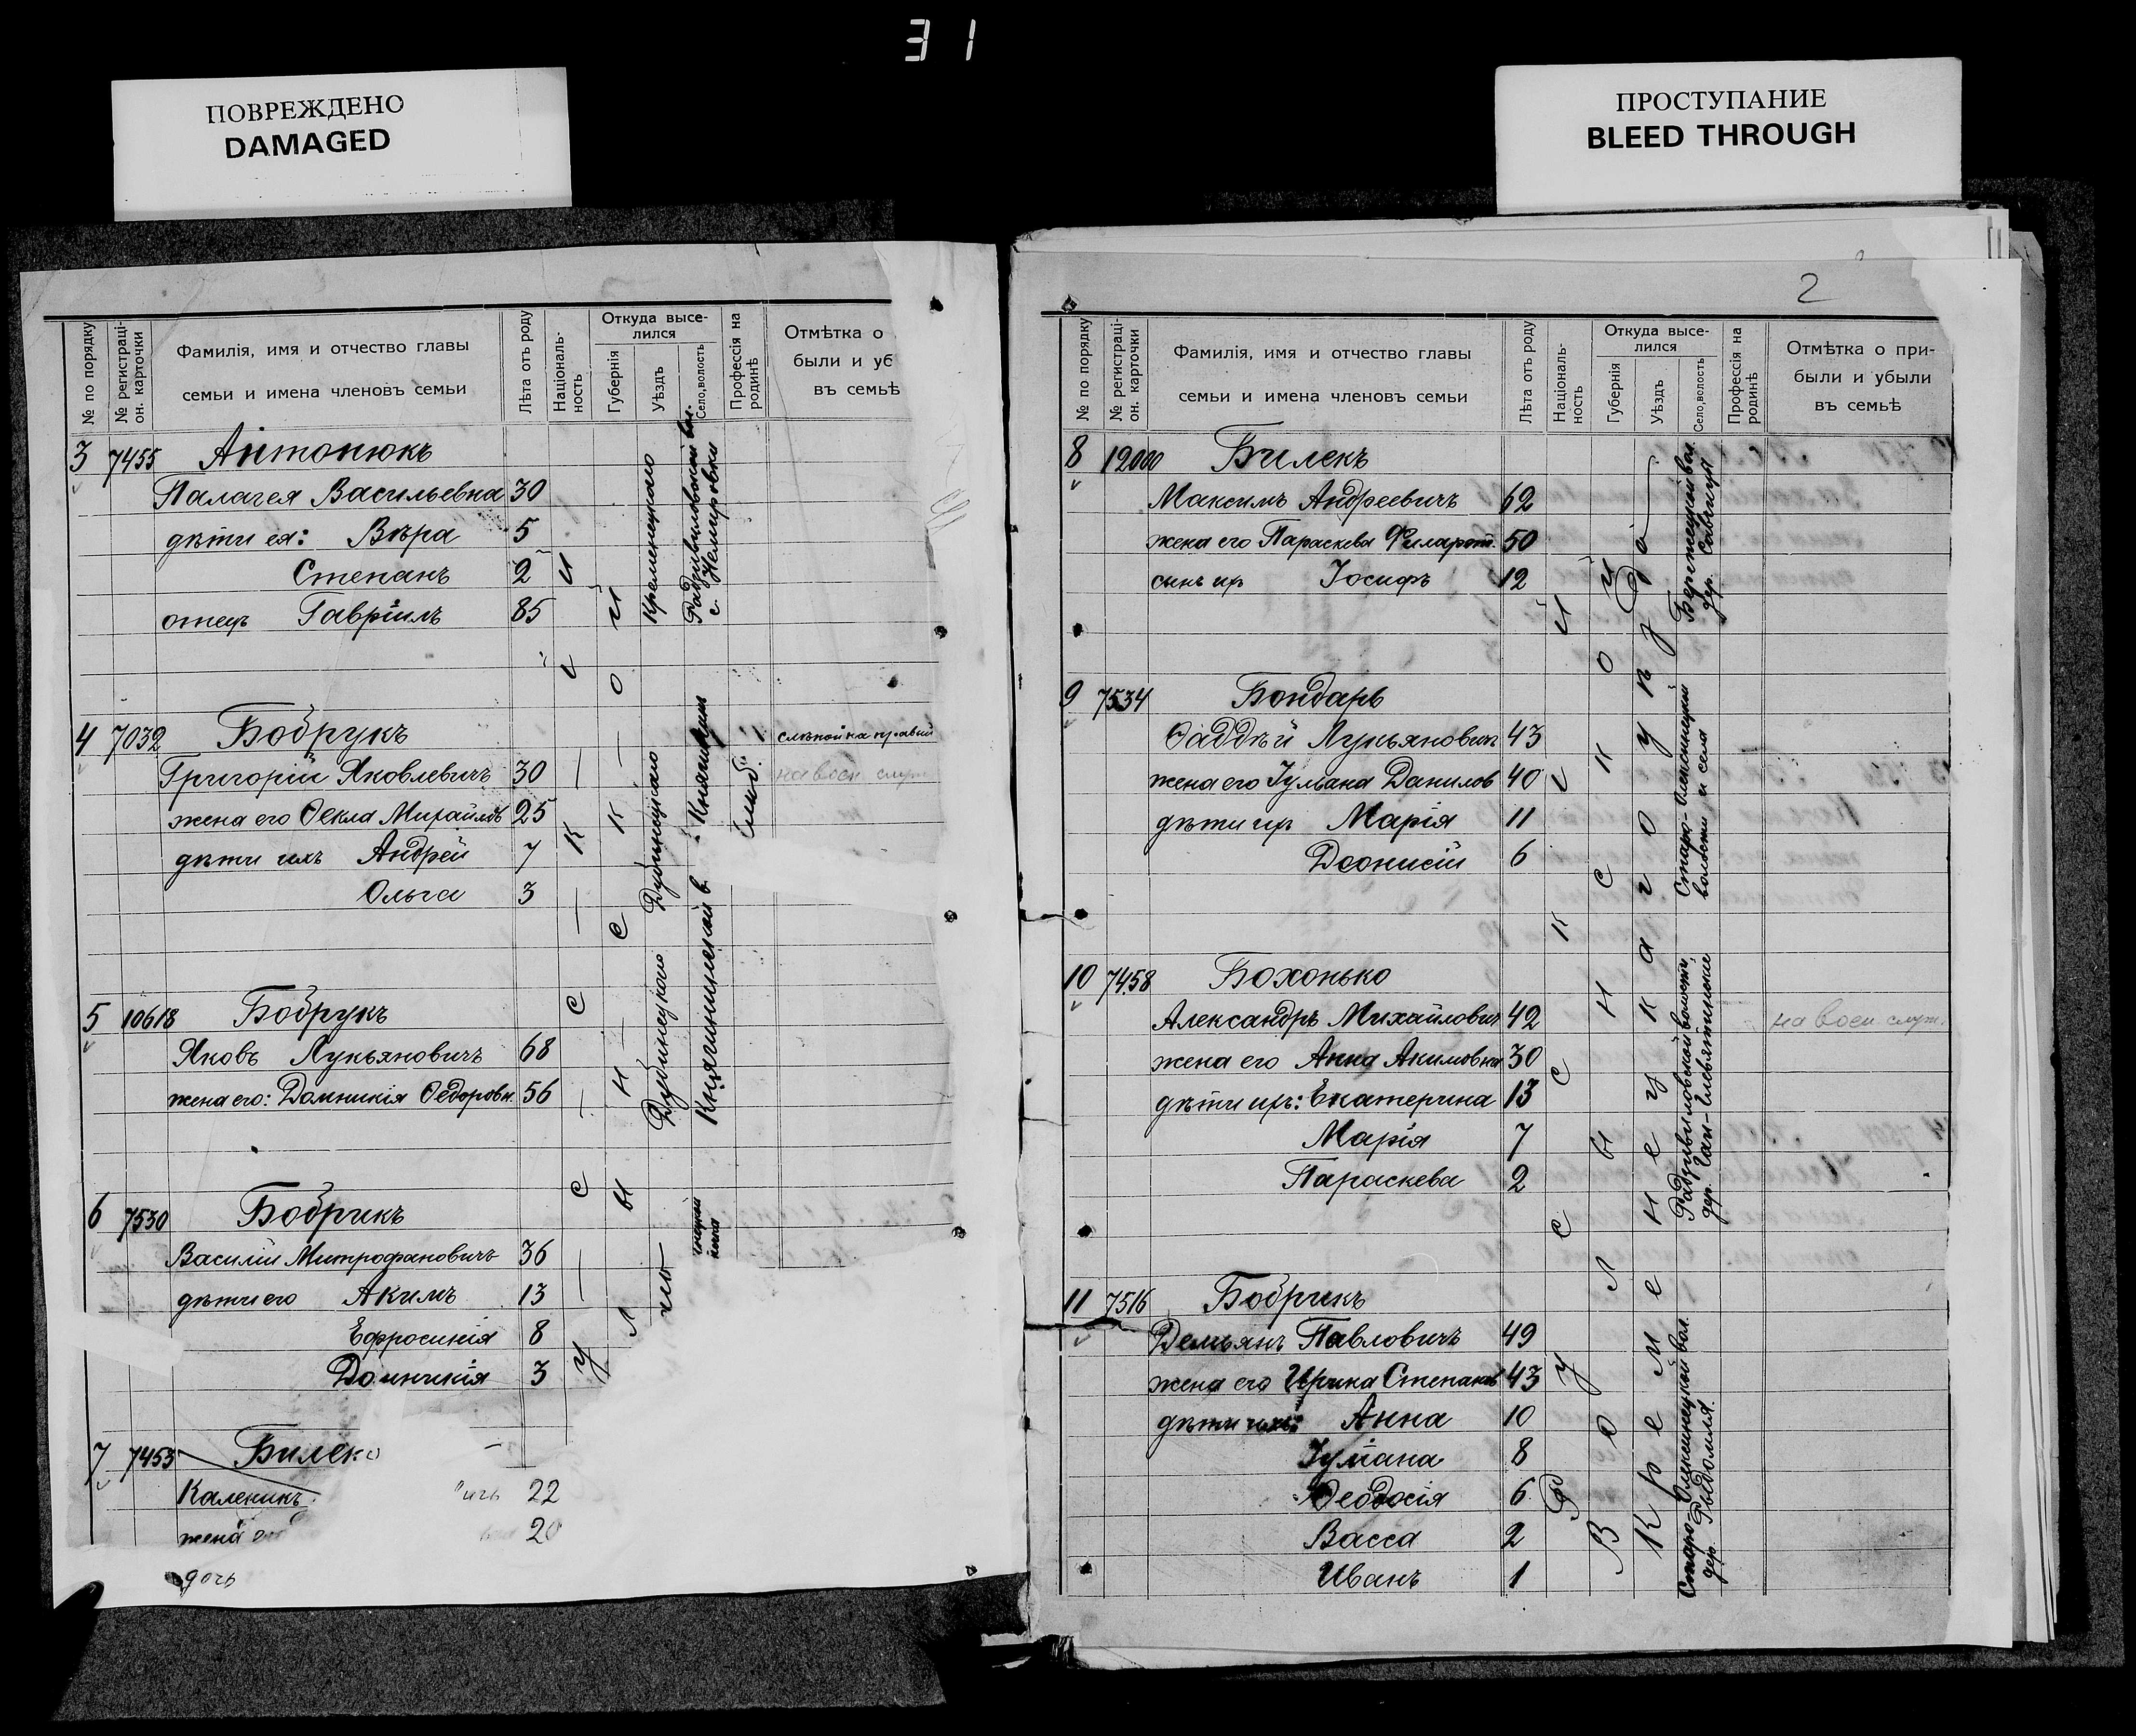 31
ПОВРЕЖДЕНО
DAMAGED
ПРОСТУПАНИЕ
BLEED THROUGH
№ по порядку
№ регистраці-
он. карточки
Фамилія, имя и отчество главы
семьи и имена членовъ семьи
Лѣта отъ роду
Націоналъ-
ность
Откуда высе-
лился
Губернія
Уѣздъ
Село,волость
Профессія на
родинѣ
Отмѣтка о
были и уб
въ семьѣ
3 7455 Антонюкъ
Палагея Васильевна 30
дѣти ея: Вѣра 5
Степанъ 2
отецъ Гавріилъ 85
Кременецкаго
с. Немировки
4 7032 Бобрукъ
Григорій Яковлевичъ 30
жена его Ѳекла 25
дѣти ихъ Андрей 7
Ольга 3
Дубинецкаго
слѣпой на правый
на воен. служ
5 10618 Бобрукъ
Яковъ Лукьяновичъ 68
жена его: Домникія Ѳедоровн. 56
Дубинецкаго
Княгининской в. Княгинин
6 7530 Бобрикъ
Василій Митрофановичъ 36
дѣти его Акимъ 13
Ефросинія 8
Домникія 3
7 7453 Билек
Каленикъ ичъ 22
жена 20
дочь
русскій
Волынской
2
№ по порядку
№ регистраці-
он. карточки
Фамилія, имя и отчество главы
семьи и имена членовъ семьи
Лѣта отъ роду
Націоналъ-
ность
Откуда высе-
лился
Губернія
Уѣздъ
Село,волость
Профессія на
родинѣ
Отмѣтка о при-
были и убыли
въ семьѣ
8 12000 Билекъ
Максимъ Андреевичъ 62
жена его Параскева Филарет. 50
сынъ их Іосифъ 12
Бережецкой вол.
дер. Савчицы
9 7534 Бондарь
Ѳаддѣй Лукьяновичъ 43
жена его Іульана Данилов 40
дѣти их Марія 11
Діонисій 6
Старо-Олексинецкой
волости и села
10 7458 Бохонько
Александръ Михайлович 42
жена его Анна Акимовна 30
дѣти ихъ: Екатерина 13
Марія 7
Параскева 2
Радзивиловской волости,
на воен. служ.
11 7516 Бобрикъ
Демьянъ Павловичъ 49
жена его Ирина Степанов 43
дѣти ихъ: Анна 10
Іуліана 8
Ѳеодосія 6
Васса 2
Иванъ 1
Старо-Олексинецкой вол.
дер. Рыдомля.
Русскій
Волынской
Кременецкаго уѣзда